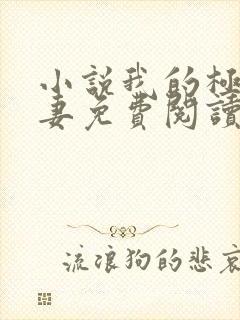 小說我的極
妻免費閱讀
流浪狗的悲哀